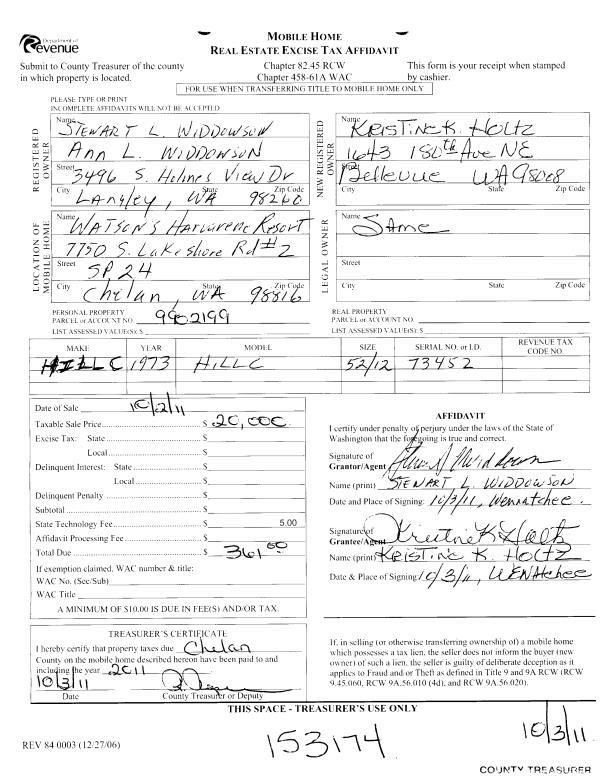 Department of
Revenue
MOBILE HOME
REAL ESTATE EXCISE TAX AFFIDAVIT
Submit to County Treasurer of the county
in which property is located.
Chapter 82.45 RCW
Chapter 458-61A WAC
This form is your receipt when stamped
by cashier.
FOR USE WHEN TRANSFERRING TITLE TO MOBILE HOME ONLY
PLEASE TYPE OR PRINT
INCOMPLETE AFFIDAVITS WILL NOT BE ACCEPTED
REGISTERED OWNER
Name STEWART L. WIDDOWSON
Ann L. WIDDOWSON
Street 3496 S. Holmes View Dr
City State Zip Code
Langley, WA 98260
NEW REGISTERED OWNER
Name KRISTINE K. HOLTZ
1643 180th Ave NE
Street Bellevue WA 98008
City State Zip Code
LOCATION OF MOBILE HOME
Name WATSON'S Harverene Resort
7750 S. Lakeshore Rd #2
Street SP 24
City State Zip Code
Chelan, WA 98816
LEGAL OWNER
Name
Same
Street
City State Zip Code
PERSONAL PROPERTY
PARCEL or ACCOUNT NO. 9902199
LIST ASSESSED VALUE(S): $
REAL PROPERTY
PARCEL or ACCOUNT NO.
LIST ASSESSED VALUE(S): $
MAKE YEAR MODEL SIZE SERIAL NO. or I.D. REVENUE TAX CODE NO.
HILLC 1973 HILLC 52/12 73452
Date of Sale 10/2/11
Taxable Sale Price $ 20,000
Excise Tax: State $
Local $
Delinquent Interest: State $
Local $
Delinquent Penalty $
Subtotal $
State Technology Fee $ 5.00
Affidavit Processing Fee $
Total Due $ 361.00
If exemption claimed, WAC number & title:
WAC No. (Sec/Sub)
WAC Title
A MINIMUM OF $10.00 IS DUE IN FEE(S) AND/OR TAX.
AFFIDAVIT
I certify under penalty of perjury under the laws of the State of
Washington that the foregoing is true and correct.
Signature of
Grantor/Agent
Name (print) STEWART L. WIDDOWSON
Date and Place of Signing: 10/3/11, Wenatchee.
Signature of
Grantee/Agent Kristine K Holtz
Name (print) KRISTINE K. HOLTZ
Date & Place of Signing: 10/3/11, WENAtchee
TREASURER'S CERTIFICATE
I hereby certify that property taxes due Chelan
County on the mobile home described hereon have been paid to and
including the year 2011
10/3/11
Date County Treasurer or Deputy
If, in selling (or otherwise transferring ownership of) a mobile home
which possesses a tax lien, the seller does not inform the buyer (new
owner) of such a lien, the seller is guilty of deliberate deception as it
applies to Fraud and/or Theft as defined in Title 9 and 9A RCW (RCW
9.45.060, RCW 9A.56.010 (4d), and RCW 9A.56.020).
THIS SPACE - TREASURER'S USE ONLY
REV 84 0003 (12/27/06)
153174
10/3/11
COUNTY TREASURER